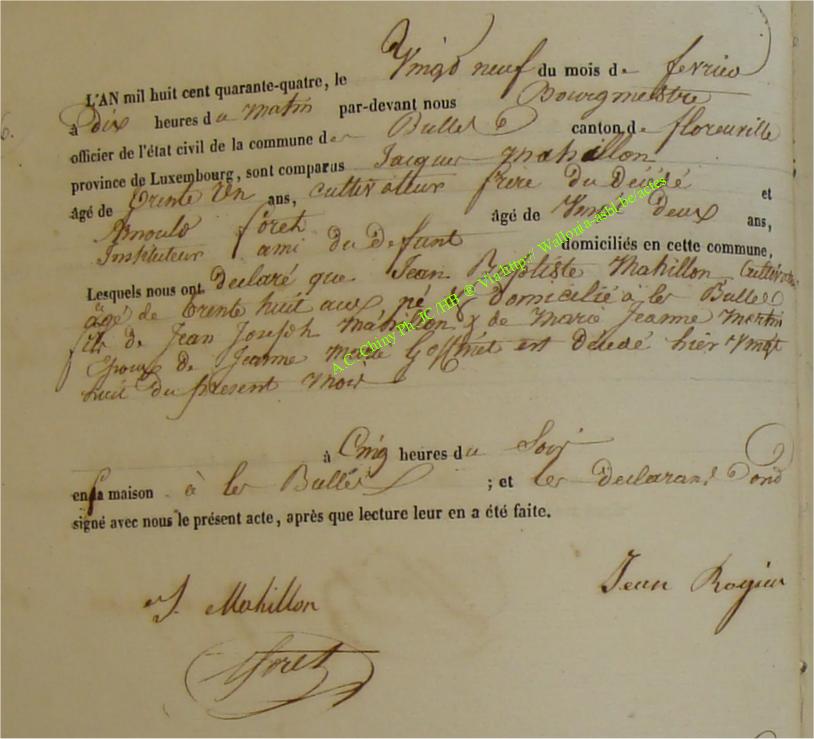 L'AN mil huit cent quarante-quatre, le Vingt neuf du mois de fevrier
6.
à dix heures du matin par-devant nous Bourgmestre
officier de l'état civil de la commune des Bulles canton de florenville
province de Luxembourg, sont comparus Jacques Mahillon
âgé de trente un ans, cultivatteur frere du Décédé et
Arnould foret âgé de Vingt deux ans,
Instituteur ami du defunt domiciliés en cette commune,
Lesquels nous ont declaré que Jean Baptiste Mahillon Cultivateur
âgé de trente huit ans né & domicilié à les Bulles
fils de Jean Joseph Mahillon & de Marie Jeanne Martin
Epoux de Jeanne Marie Goffinet est décédé hier Vingt
huit du present mois
à Cinq heures du Soir
en sa maison à les Bulles ; et les declarans ont
signé avec nous le présent acte, après que lecture leur en a été faite.
J. Mahillon Jean Rogier
foret
A.C. Chiny Ph. JC / HB ® Via http:// Wallonia-asbl.be/actes